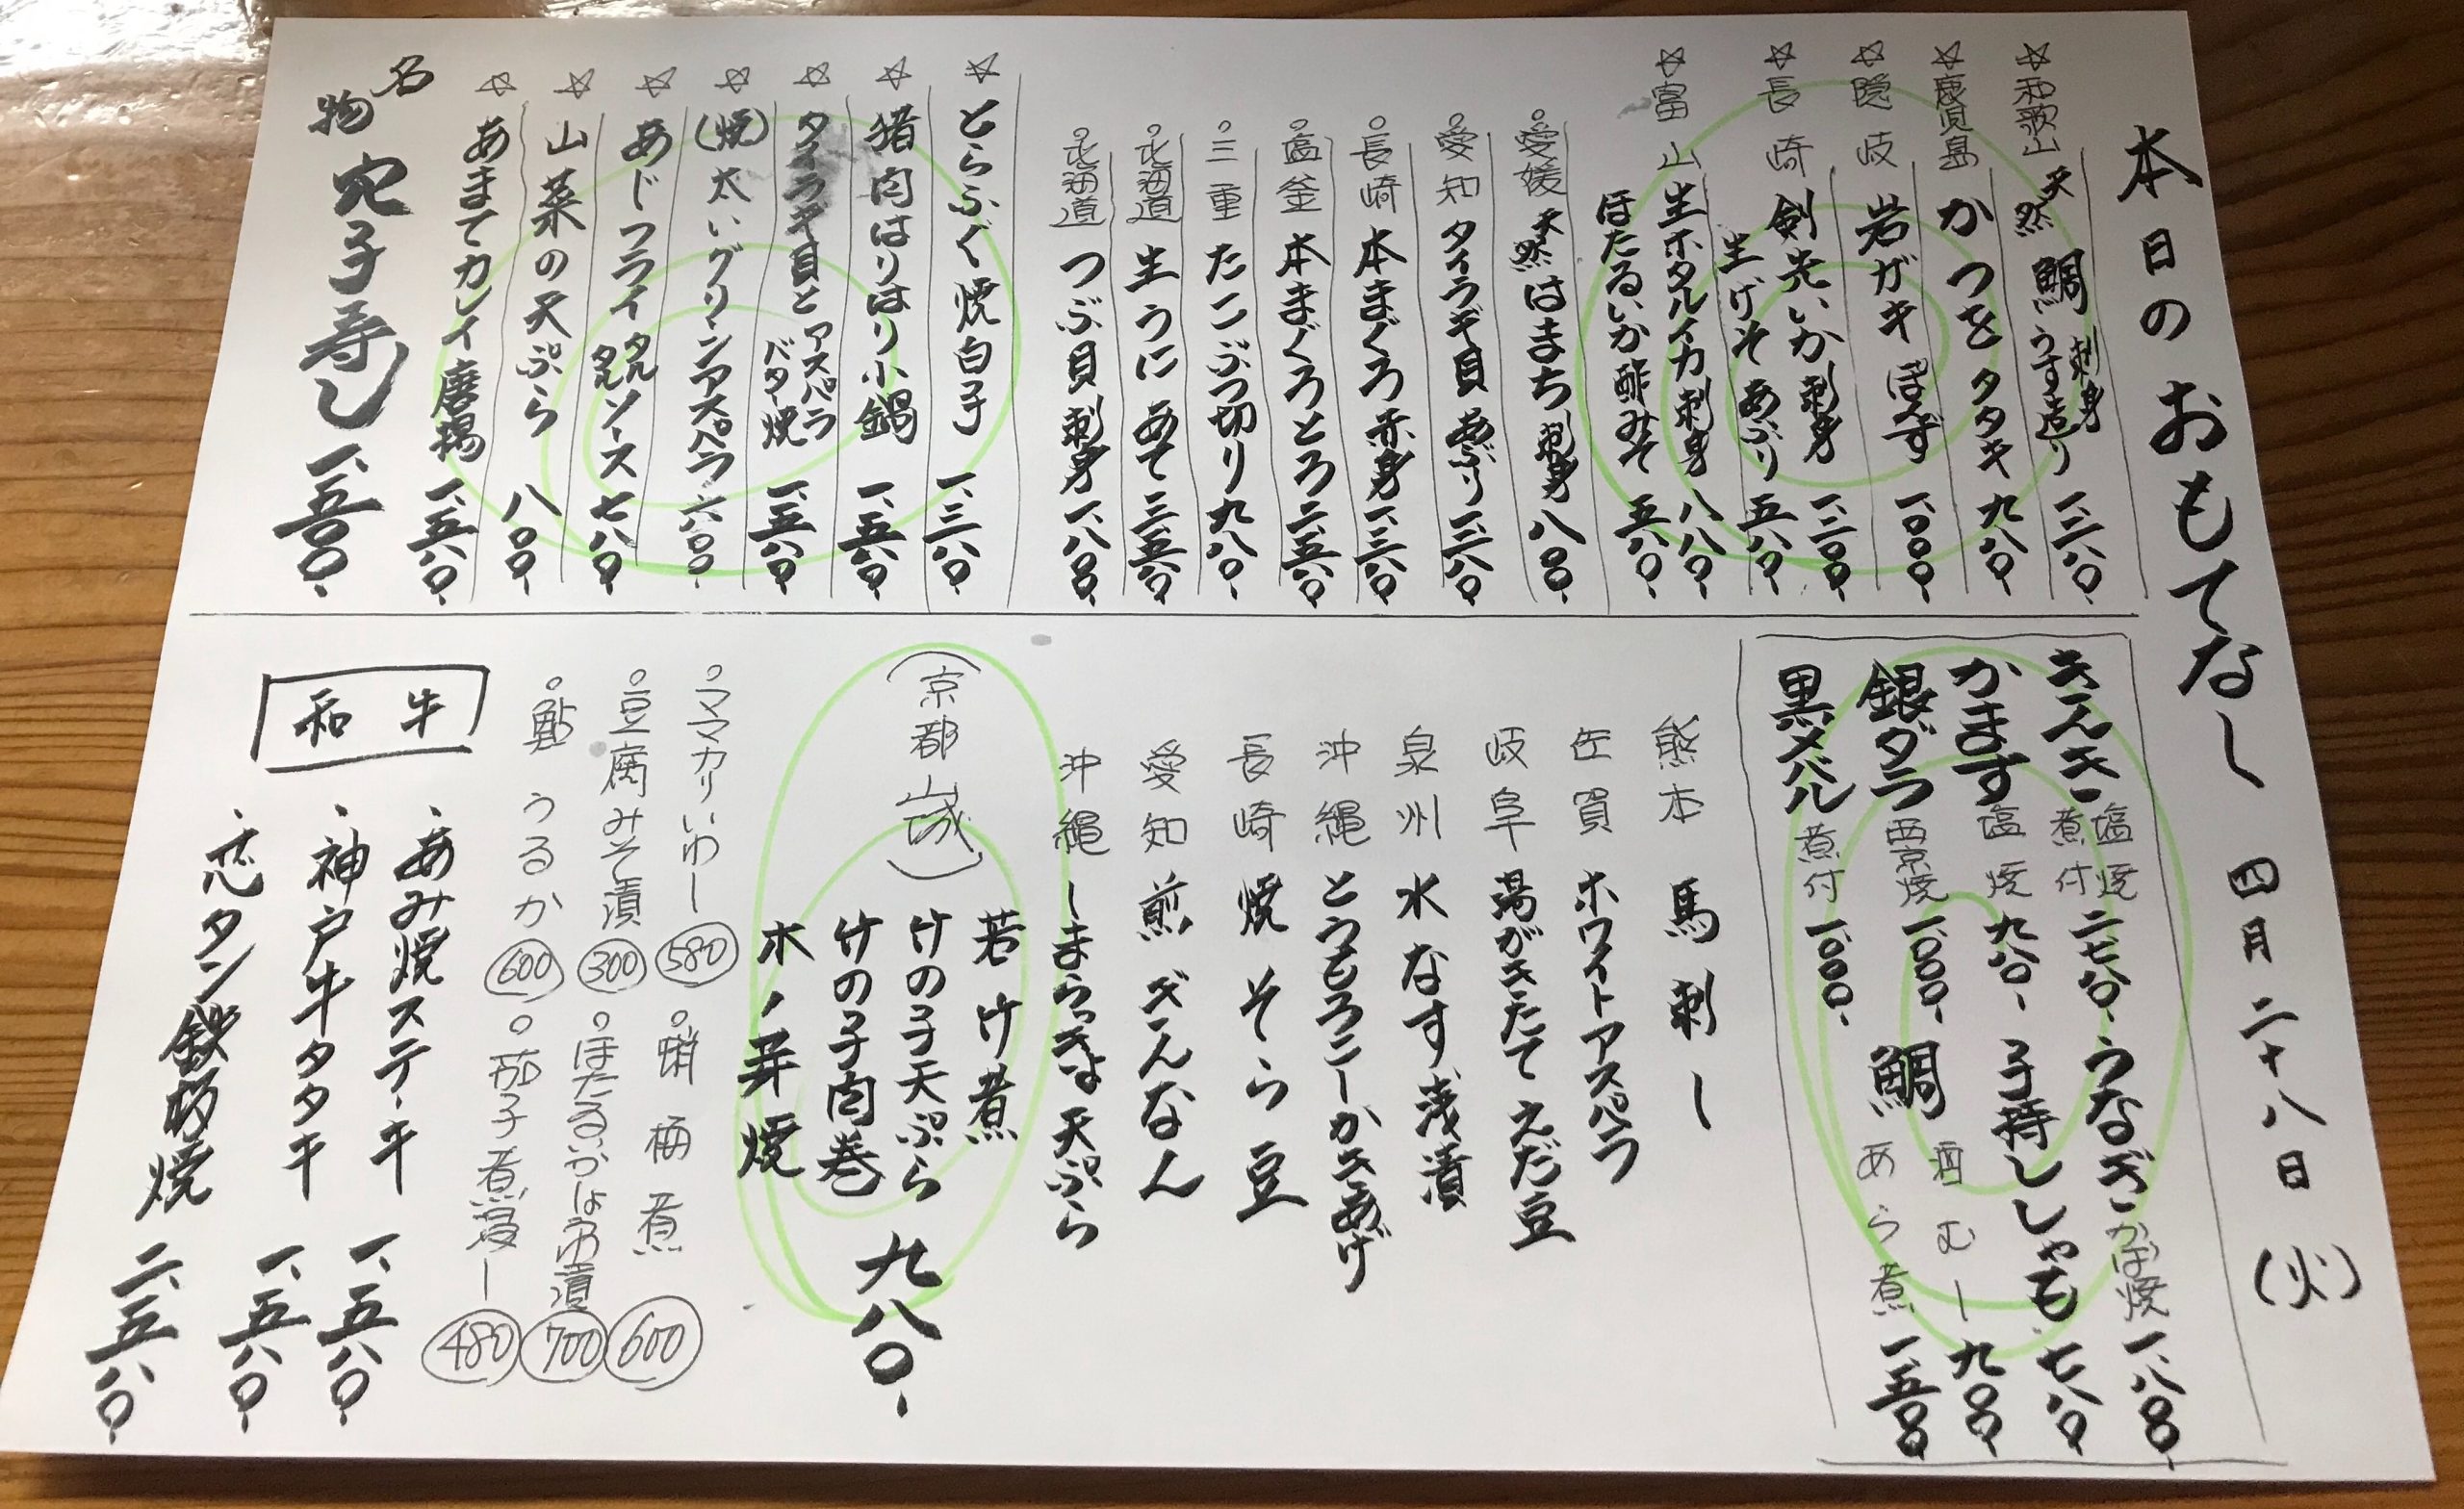 本日のおもてなし 四月二十八日(火)
☆和歌山 天然 鯛 刺身 うす造り 一、三八〇
☆鹿児島 かつをタタキ 九八〇
☆隠岐 岩ガキ ぽんず 一、〇〇〇
☆長崎 剣先いか刺身 一、二〇〇
生げそあぶり 五八〇
☆富山 生ホタルイカ刺身 八八〇
ほたるいか酢みそ 五八〇
○愛媛 天然はまち刺身 八〇〇
○愛知 タイラギ貝 あぶり 一、三八〇
○長崎 本まぐろ赤身 一、三八〇
○塩釜 本まぐろとろ 二、五八〇
○三重 たこぶつ切り 九八〇
○北海道 生うに あて 三、五〇〇
○北海道 つぶ貝刺身 一、八〇〇
☆とらふぐ焼白子 一、三八〇
☆猪肉はりはり小鍋 一、五八〇
☆タイラギ貝とアスパラバター焼 一、五八〇
☆(焼)太いグリーンアスパラ 六〇〇
☆あじフライ タルタルソース 七八〇
☆山菜の天ぷら 八〇〇
☆あまてカレイ 唐揚 一、五八〇
名物 穴子寿し 一、五〇〇
きんき 塩焼 煮付 二、七八〇
うなぎ かば焼 一、八〇〇
かます 塩焼 九八〇
子持ししゃも 七八〇
銀ダラ 西京焼 一、〇〇〇
鯛 酒むし 九〇〇
あら煮 一、五〇〇
黒メバル 煮付 一、〇〇〇
熊本 馬刺し
佐賀 ホワイトアスパラ
岐阜 湯がきたて えだ豆
泉州 水なす浅漬
沖縄 とうもろこしかきあげ
長崎 焼そら豆
愛知 煎ぎんなん
沖縄 しまらっきょ天ぷら
(京都 山城)
若竹煮
竹の子天ぷら
竹の子肉巻
木ノ芽焼
九八〇
○ママカリいわし 580
○蛸柚煮 600
○豆腐みそ漬 300
○ほたるいかしょうゆ漬 700
○鮎うるか 600
○茄子煮浸し 480
和牛
・あみ焼ステーキ 一、五八〇
・神戸牛タタキ 一、五八〇
・タン鉄板焼 二、五八〇